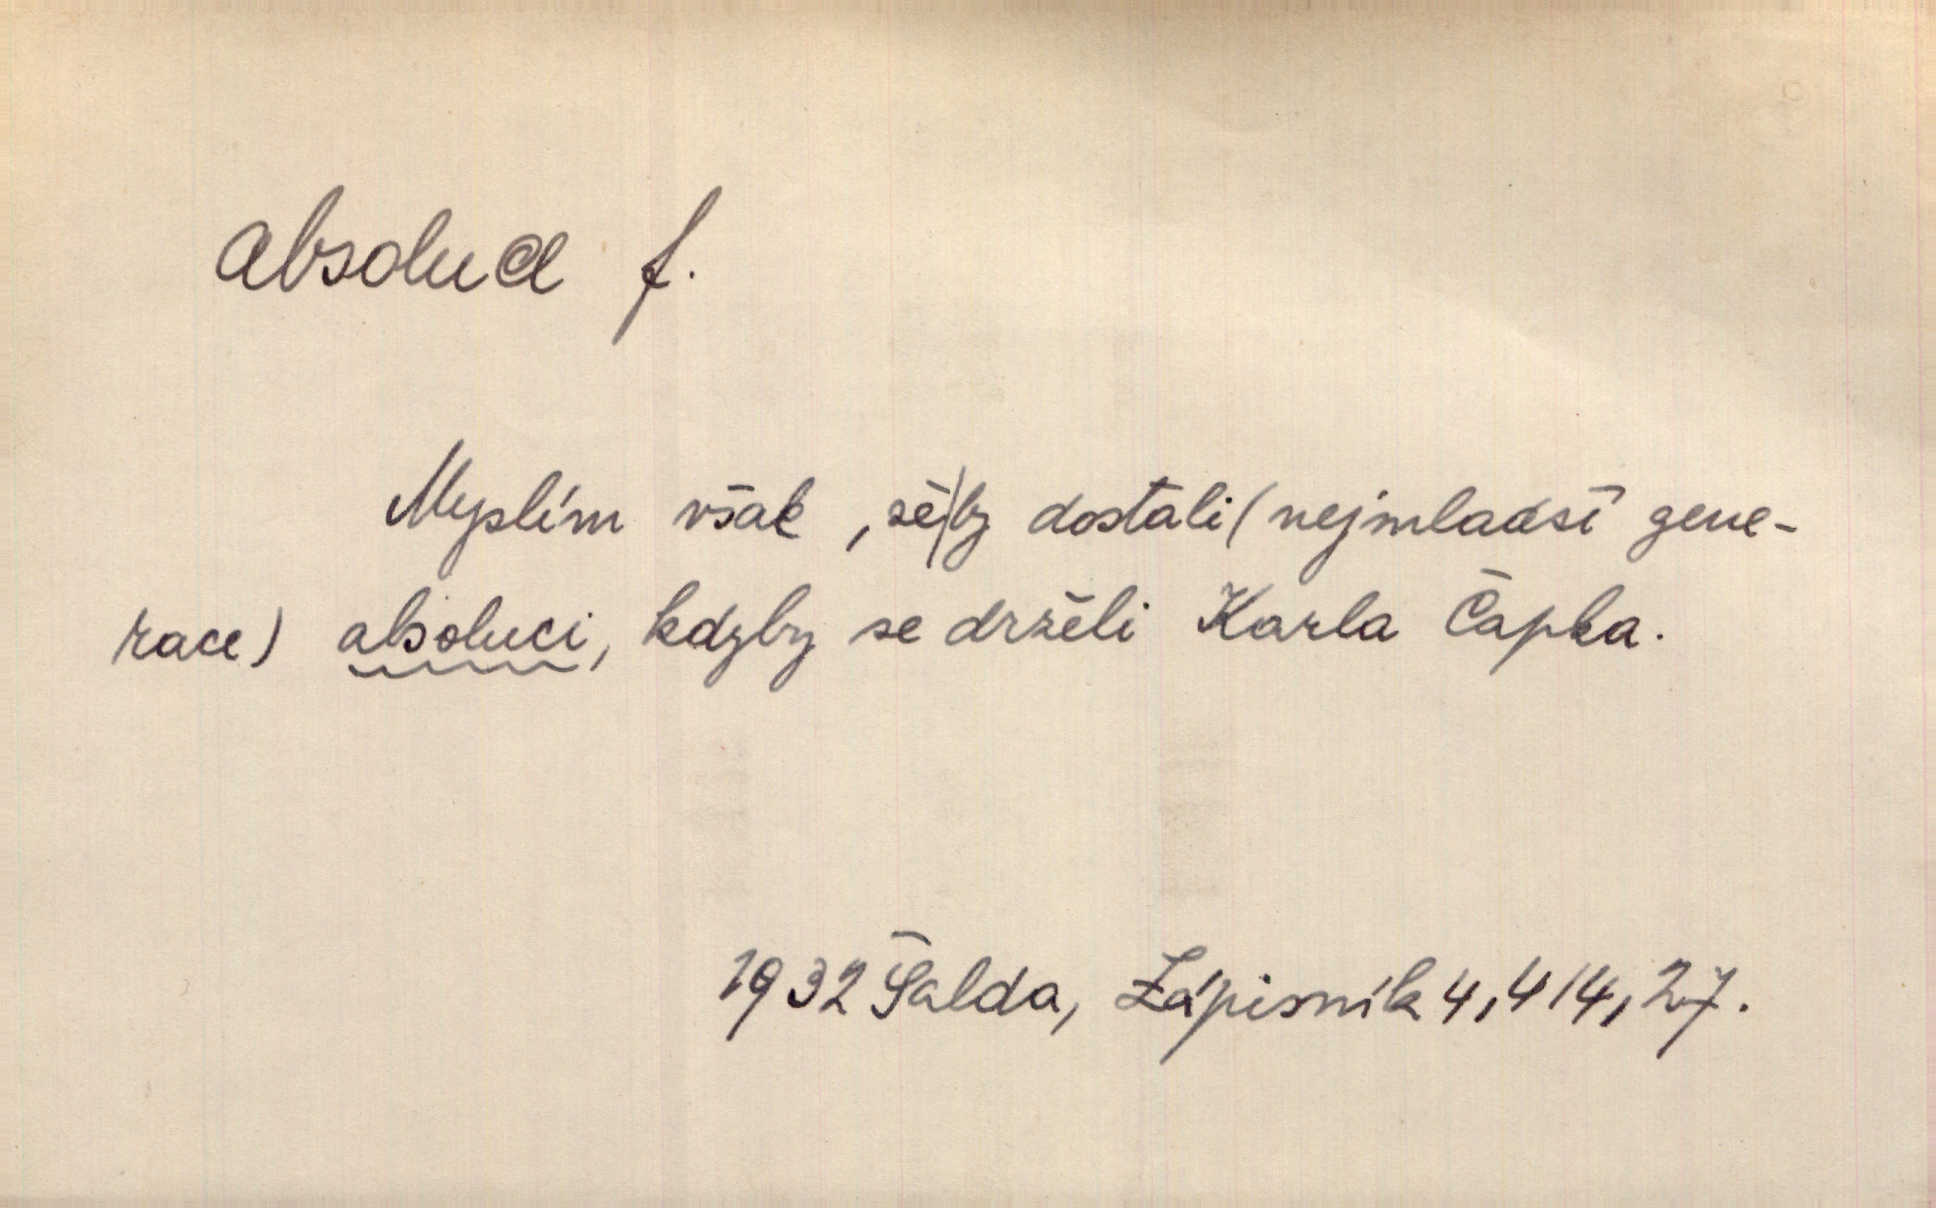 absoluce f.
Myslím však, že|by dostali (nejmladší gene-
race) absoluci, kdyby se drželi Karla Čapka.
1932 Šalda, Zápisník 4, 414, 27.